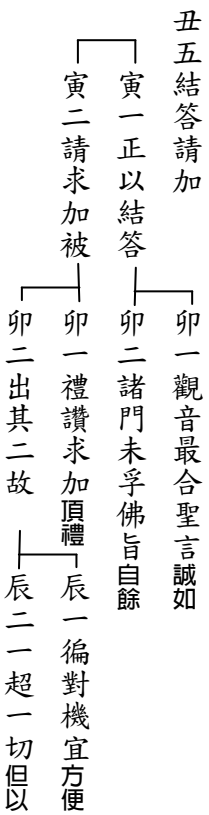 丑五結答請加
寅一正以結答
卯一觀音最合聖言誠如
卯二諸門未孚佛旨自餘
寅二請求加被
卯一禮讚求加頂禮
卯二出其二故
辰一徧對機宜方便
辰二一超一切但以